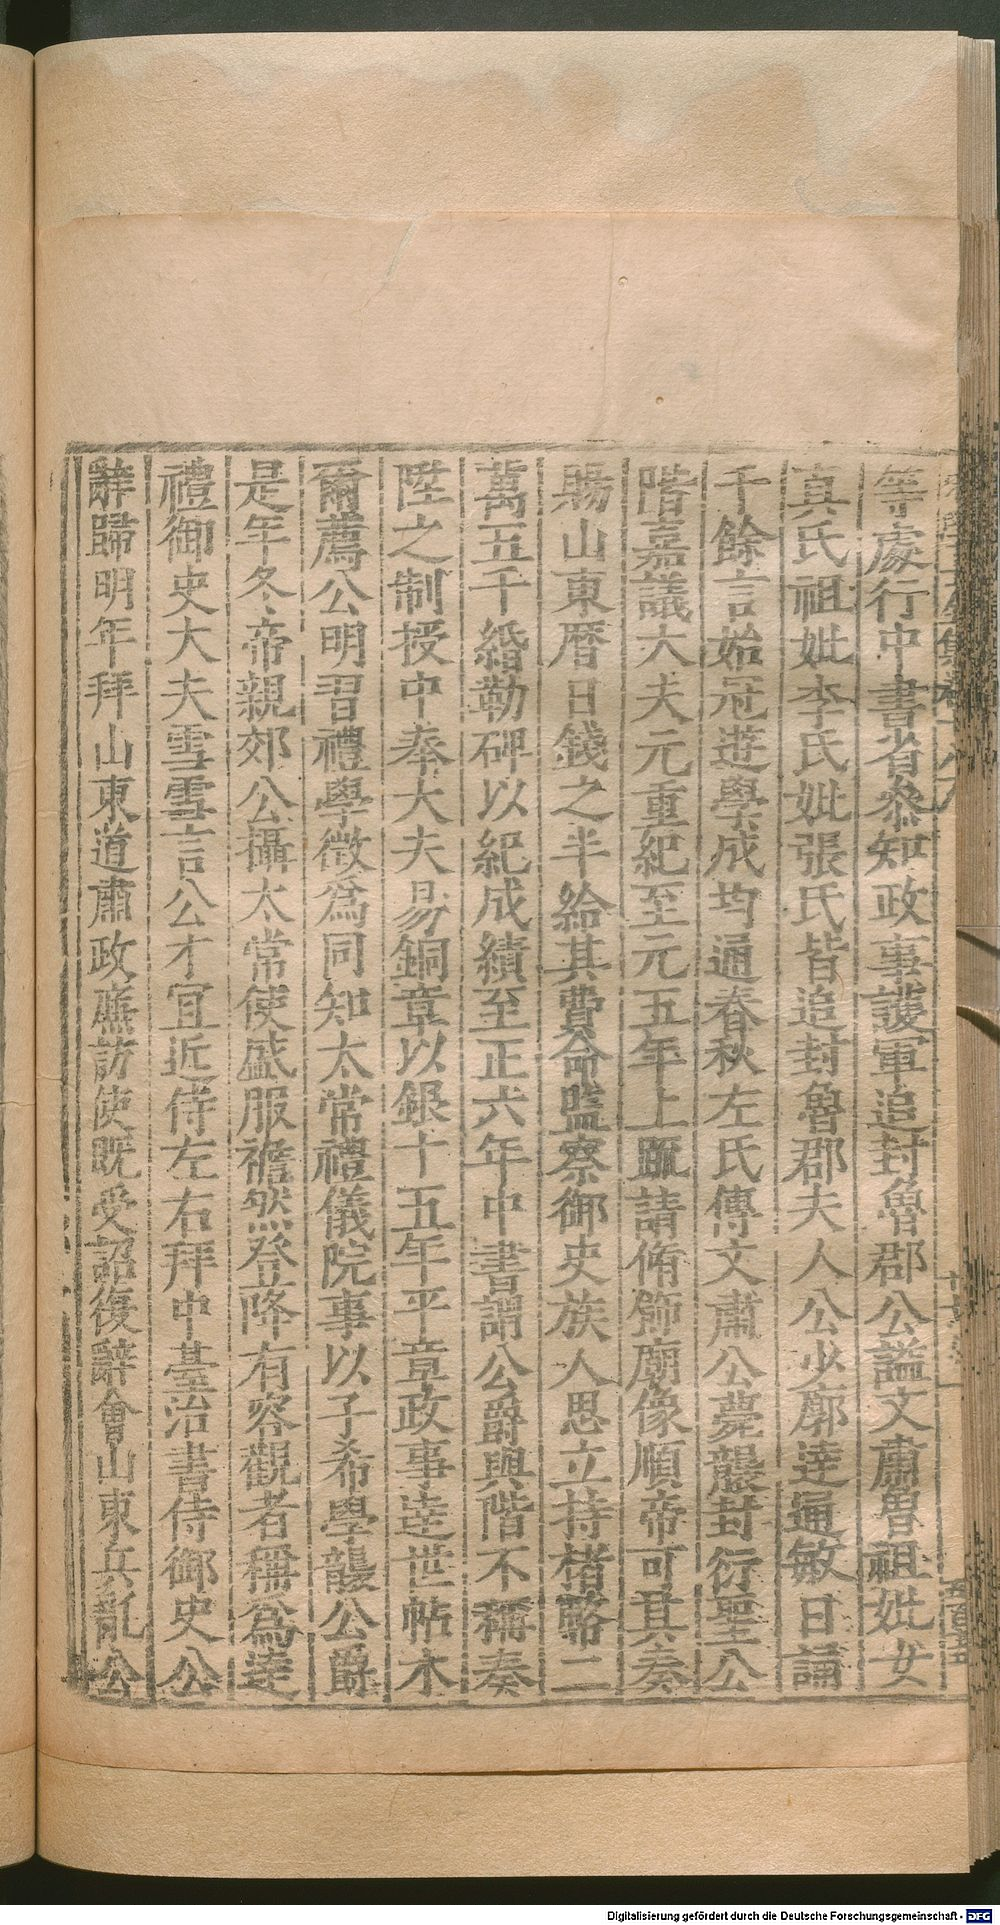 等處行中書省參知政事護軍追封魯郡公謚文肅曽祖妣女
真氏祖妣李氏妣張氏皆追封魯郡夫人公少廓達通敏日誦
千餘言始冠遊學成均通春秋左氏傳文肅公薨襲封衍聖公
階嘉議大夫元重紀至元五年上䟽請脩飾廟像順帝可其奏
賜山東曆日錢之半給其費命監察御史族人思立持楮幣二
萬五千緡勒碑以紀成績至正六年中書謂公爵與階不稱奏
陞之制授中奉大夫易銅章以銀十五年平章政事達世帖木
爾薦公明習禮學徵為同知太常禮儀院事以子希學襲公爵
是年冬帝親郊公攝太常使盛服襜然登降有容觀者稱為達
禮御史大夫雪雪言公才宜近侍左右拜中臺治書侍御史公
辭歸明年拜山東道肅政㢘訪使既受詔復辭會山東兵亂公
Digitalisierung gefördert durch die Deutsche Forschungsgemeinschaft - DFG